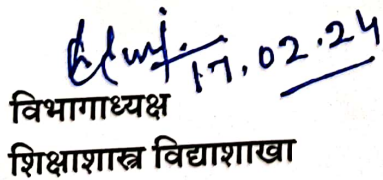 17.02.24
विभागाध्यक्ष
शिक्षाशास्त्र विद्याशाखा